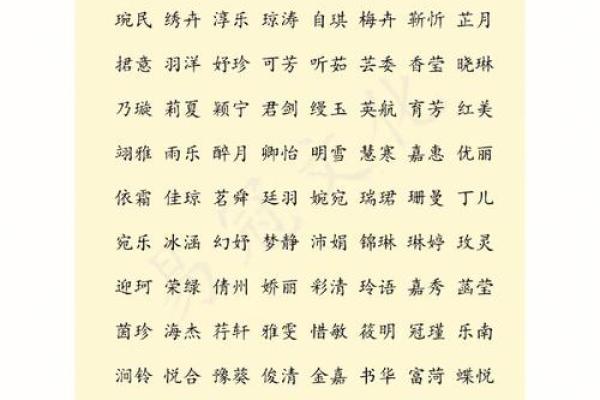 琬民 绣卉 淳乐 琼涛 自琪 梅卉 靳忻 芷月
捃意 羽洋 妤珍 可芳 听茹 芸委 香莹 晓琳
乃璇 莉夏 颖宁 君剑 缦玉 英航 育芳 红美
翊雅 雨乐 醉月 卿怡 明雪 慧寒 嘉惠 优丽
依霜 佳琼 茗舜 廷羽 婉宛 瑞珺 珊曼 丁儿
宛乐 冰涵 幻妤 梦静 沛娟 锦琳 琳婷 玫灵
迎珂 荣绿 倩州 娇丽 彩清 玲语 嘉秀 菡莹
茵珍 海杰 荇轩 雅雯 惜敏 筱明 冠瑾 乐南
涧铃 悦合 豫葵 俊清 金嘉 书华 富菏 蝶悦
易冠文化